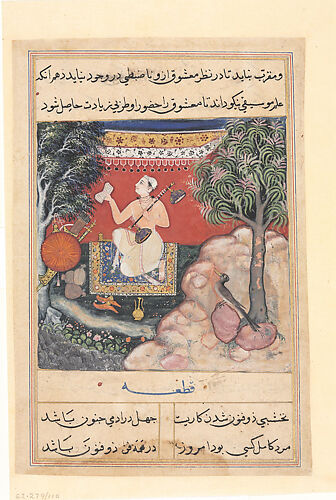 و مقرب نیاید تا در نظر معشوق از و با ضبطی در وجود نیاید و هر آنکه
علم موسیقی نیکو داند تا معشوق را حضور او طرب زیادت حاصل شود
قطعه
نخشبی ذو فنون شدن کاریست
جهل در آدمی جنون باشد
مرد کامل کسی بود امروز
که در همه فن ذو فنون باشد
62.279/110